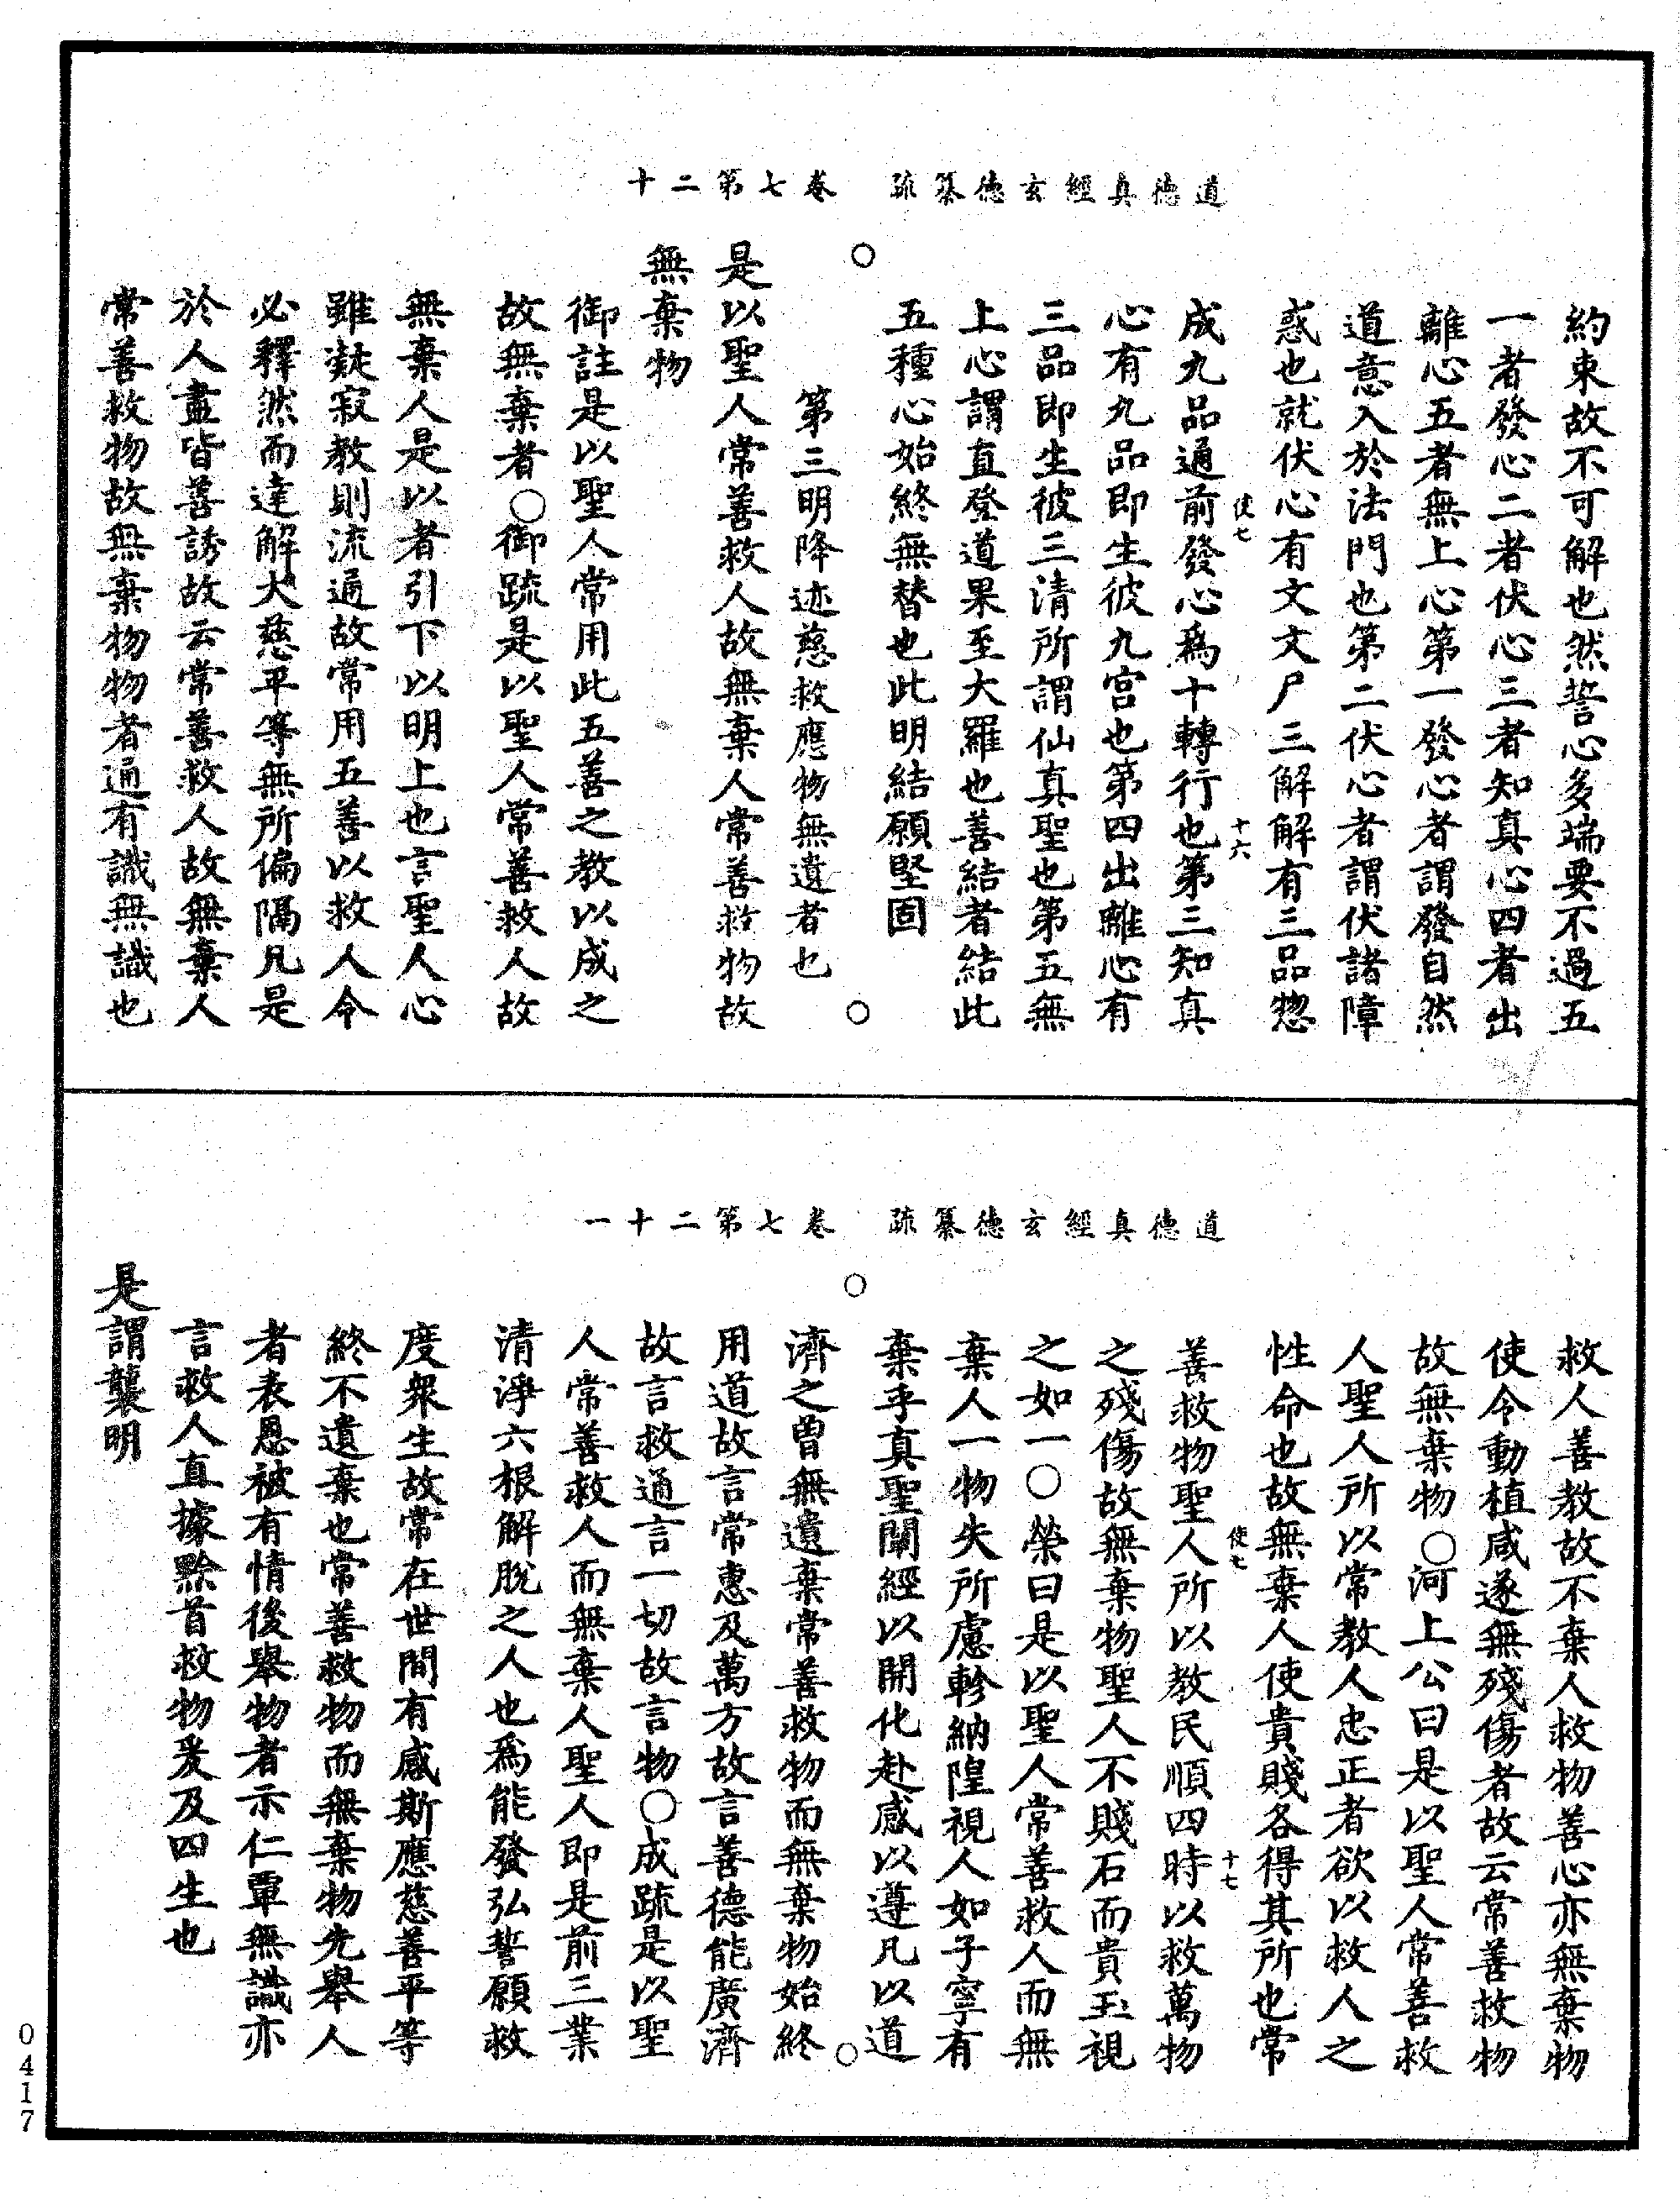 道德真經玄德纂疏　卷七第二十
約束故不可解也然誓心多端要不過五
一者發心二者伏心三者知真心四者出
離心五者無上心第一發心者謂發自然
道意入於法門也第二伏心者謂伏諸障
惑也就伏心有文文尸三解解有三品惣
使七　十六
成九品通前發心爲十轉行也第三知真
心有九品即生彼九宮也第四出離心有
三品即生彼三清所謂仙真聖也第五無
上心謂直登道果至大羅也善結者結此
五種心始終無替也此明結願堅固
○　○
第三明降迹慈救應物無遺者也
是以聖人常善救人故無棄人常善救物故
無棄物
御註是以聖人常用此五善之教以成之
故無棄者○御疏是以聖人常善救人故
無棄人是以者引下以明上也言聖人心
雖凝寂教則流通故常用五善以救人令
必釋然而達解大慈平等無所偏隔凡是
於人盡皆善誘故云常善救人故無棄人
常善救物故無棄物物者通有識無識也
道德真經玄德纂疏　卷七第二十一
救人善教故不棄人救物善心亦無棄物
使令動植咸遂無殘傷者故云常善救物
故無棄物○河上公曰是以聖人常善救
人聖人所以常教人忠正者欲以救人之
性命也故無棄人使貴賤各得其所也常
使七　十七
善救物聖人所以教民順四時以救萬物
之殘傷故無棄物聖人不賤石而貴玉視
之如一○榮曰是以聖人常善救人而無
棄人一物失所慮軫納隍視人如子寧有
棄乎真聖闡經以開化赴感以遵凡以道
○　○
濟之曾無遺棄常善救物而無棄物始終
用道故言常惠及萬方故言善德能廣濟
故言救通言一切故言物○成疏是以聖
人常善救人而無棄人聖人即是前三業
清淨六根解脫之人也爲能發弘誓願救
度衆生故常在世間有感斯應慈善平等
終不遺棄也常善救物而無棄物先舉人
者表恩被有情後舉物者示仁覃無識亦
言救人直據黔首救物爰及四生也
是謂襲明
0417